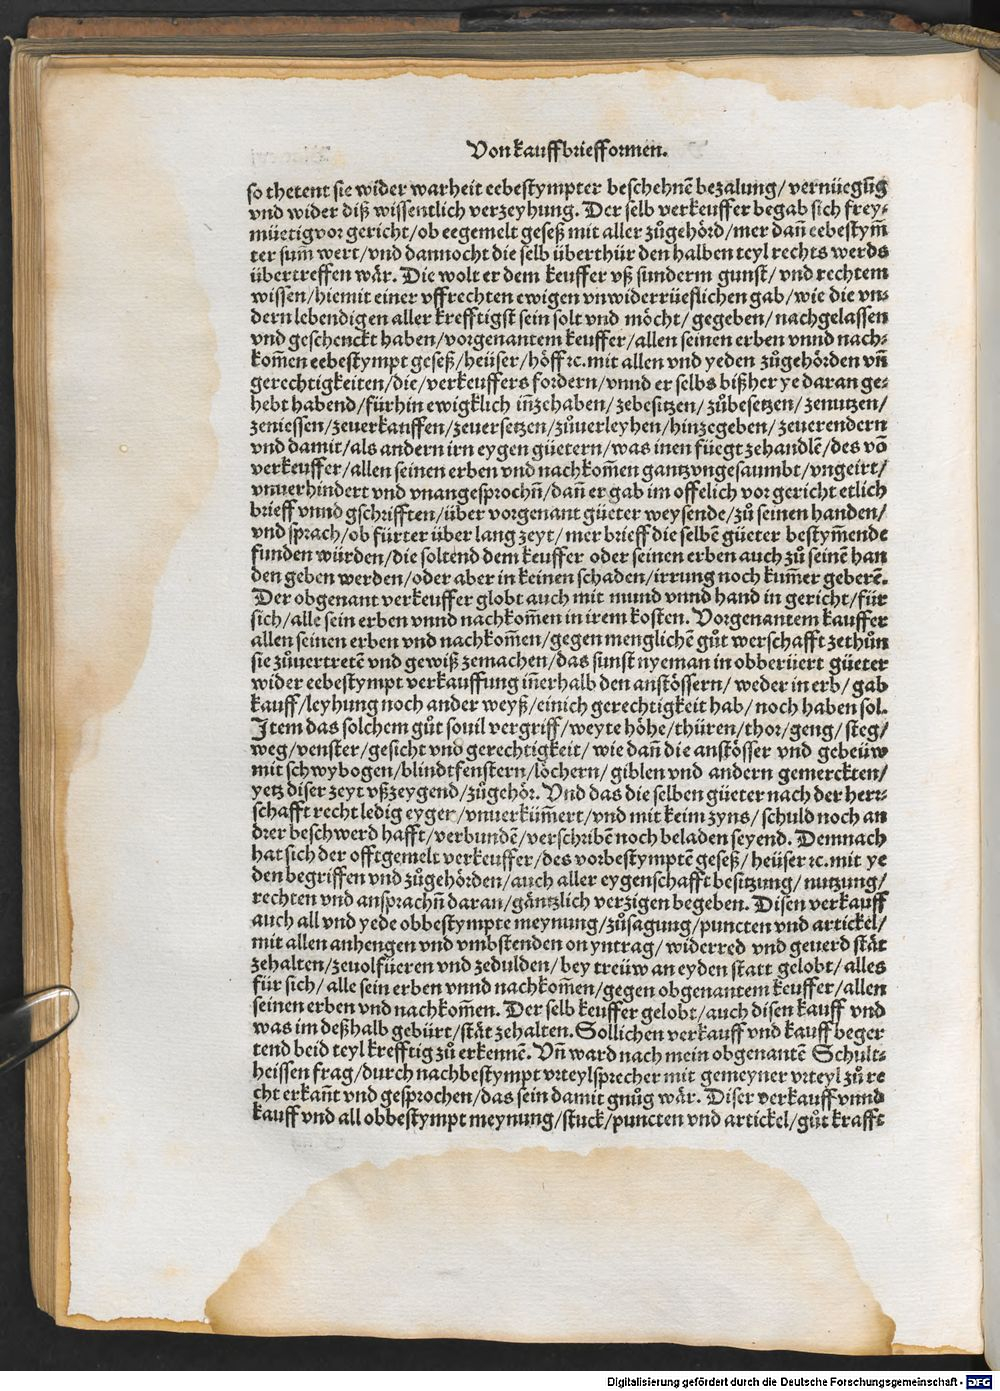 Von kauffbriefformen.
so thetent sie wider warheit eebestympter beschehnē bezalung/ vernüegūg
vnd wider diß wissentlich verzeyhung. Der selb verkeuffer begab sich frey⸗
müetig vor gericht/ ob eegemelt geseß mit aller zůgehörd/ mer dañ eebestym̄
ter sum̄ wert/ vnd dannocht die selb überthür den halben teyl rechts werds
übertreffen wär. Die wolt er dem keuffer vß sunderm gunst/ vnd rechtem
wissen/ hiemit einer vffrechten ewigen vnwiderrüeflichen gab/ wie die vn⸗
dern lebendigen aller krefftigst sein solt vnd möcht/ gegeben/ nachgelassen
vnd geschenckt haben/ vorgenantem keuffer/ allen seinen erben vnnd nach⸗
kom̄en eebestympt geseß/ heüser/ höff ꝛc. mit allen vnd yeden zůgehörden vñ
gerechtigkeiten/ die/ verkeuffers fordern/ vnnd er selbs bißher ye daran ge⸗
hebt habend/ fürhin ewigklich iñzehaben/ zebesitzen/ zůbesetzen/ zenutzen/
zeniessen/ zeuerkauffen/ zeuersetzen/ zůuerleyhen/ hinzegeben/ zeuerendern
vnd damit/ als andern irn eygen güetern/ was inen füegt zehandlē/ des vō
verkeuffer/ allen seinen erben vnd nachkom̄en gantz vngesaumbt/ vngeirt/
vnuerhindert vnd vnangesprochñ/ dañ er gab im offelich vor gericht etlich
brieff vnnd gschrifften/ über vorgenant güeter weysende/ zů seinen handen/
vnd sprach/ ob fürter über lang zeyt/ mer brieff die selbē güeter bestym̄ende
funden würden/ die soltend dem keuffer oder seinen erben auch zů seinē han
den geben werden/ oder aber in keinen schaden/ irrung noch kum̄er geberē.
Der obgenant verkeuffer globt auch mit mund vnnd hand in gericht/ für
sich/ alle sein erben vnnd nachkom̄en in irem kosten. Vorgenantem kauffer
allen seinen erben vnd nachkom̄en/ gegen menglichē gůt werschafft zethůn
sie zůuertretē vnd gewiß zemachen/ das sunst nyeman in obberüert güeter
wider eebestympt verkauffung iñerhalb den anstössern/ weder in erb/ gab
kauff/ leyhung noch ander weyß/ einich gerechtigkeit hab/ noch haben sol.
Item das solchem gůt souil vergriff/ weyte höhe/ thüren/ thor/ geng/ steg/
weg/ venster/ gesicht vnd gerechtigkeit/ wie dañ die anstösser vnd gebeüw
mit schwybogen/ blindtfenstern/ löchern/ giblen vnd andern gemerckten/
yetz diser zeyt vßzeygend/ zůgehör. Vnd das die selben güeter nach der herr⸗
schafft recht ledig eygen/ vnuerküm̄ert/ vnd mit keim zyns/ schuld noch an
drer beschwerd hafft/ verbundē/ verschribē noch beladen seyend. Demnach
hat sich der offtgemelt verkeuffer/ des vorbestymptē geseß/ heüser ꝛc. mit ye
den begriffen vnd zůgehörden/ auch aller eygenschafft besitzung/ nutzung/
rechten vnd ansprachñ daran/ gäntzlich verzigen begeben. Disen verkauff
auch all vnd yede obbestympte meynung/ zůsagung/ puncten vnd artickel/
mit allen anhengen vnd vmbstenden on yntrag/ widerred vnd geuerd stät
zehalten/ zeuolfüeren vnd zedulden/ bey treüw an eyden statt gelobt/ alles
für sich/ alle sein erben vnnd nachkom̄en/ gegen obgenantem keuffer/ allen
seinen erben vnd nachkom̄en. Der selb keuffer gelobt/ auch disen kauff vnd
was im deßhalb gebürt/ stät zehalten. Sollichen verkauff vnd kauff beger
tend beid teyl krefftig zů erkennē. Vñ ward nach mein obgenantē Schult⸗
heissen frag/ durch nachbestympt vrteylsprecher mit gemeyner vrteyl zů re
cht erkañt vnd gesprochen/ das sein damit gnůg wär. Diser verkauff vnnd
kauff vnd all obbestympt meynung/ stuck/ puncten vnd artickel/ gůt krafft
Digitalisierung gefördert durch die Deutsche Forschungsgemeinschaft - DFG